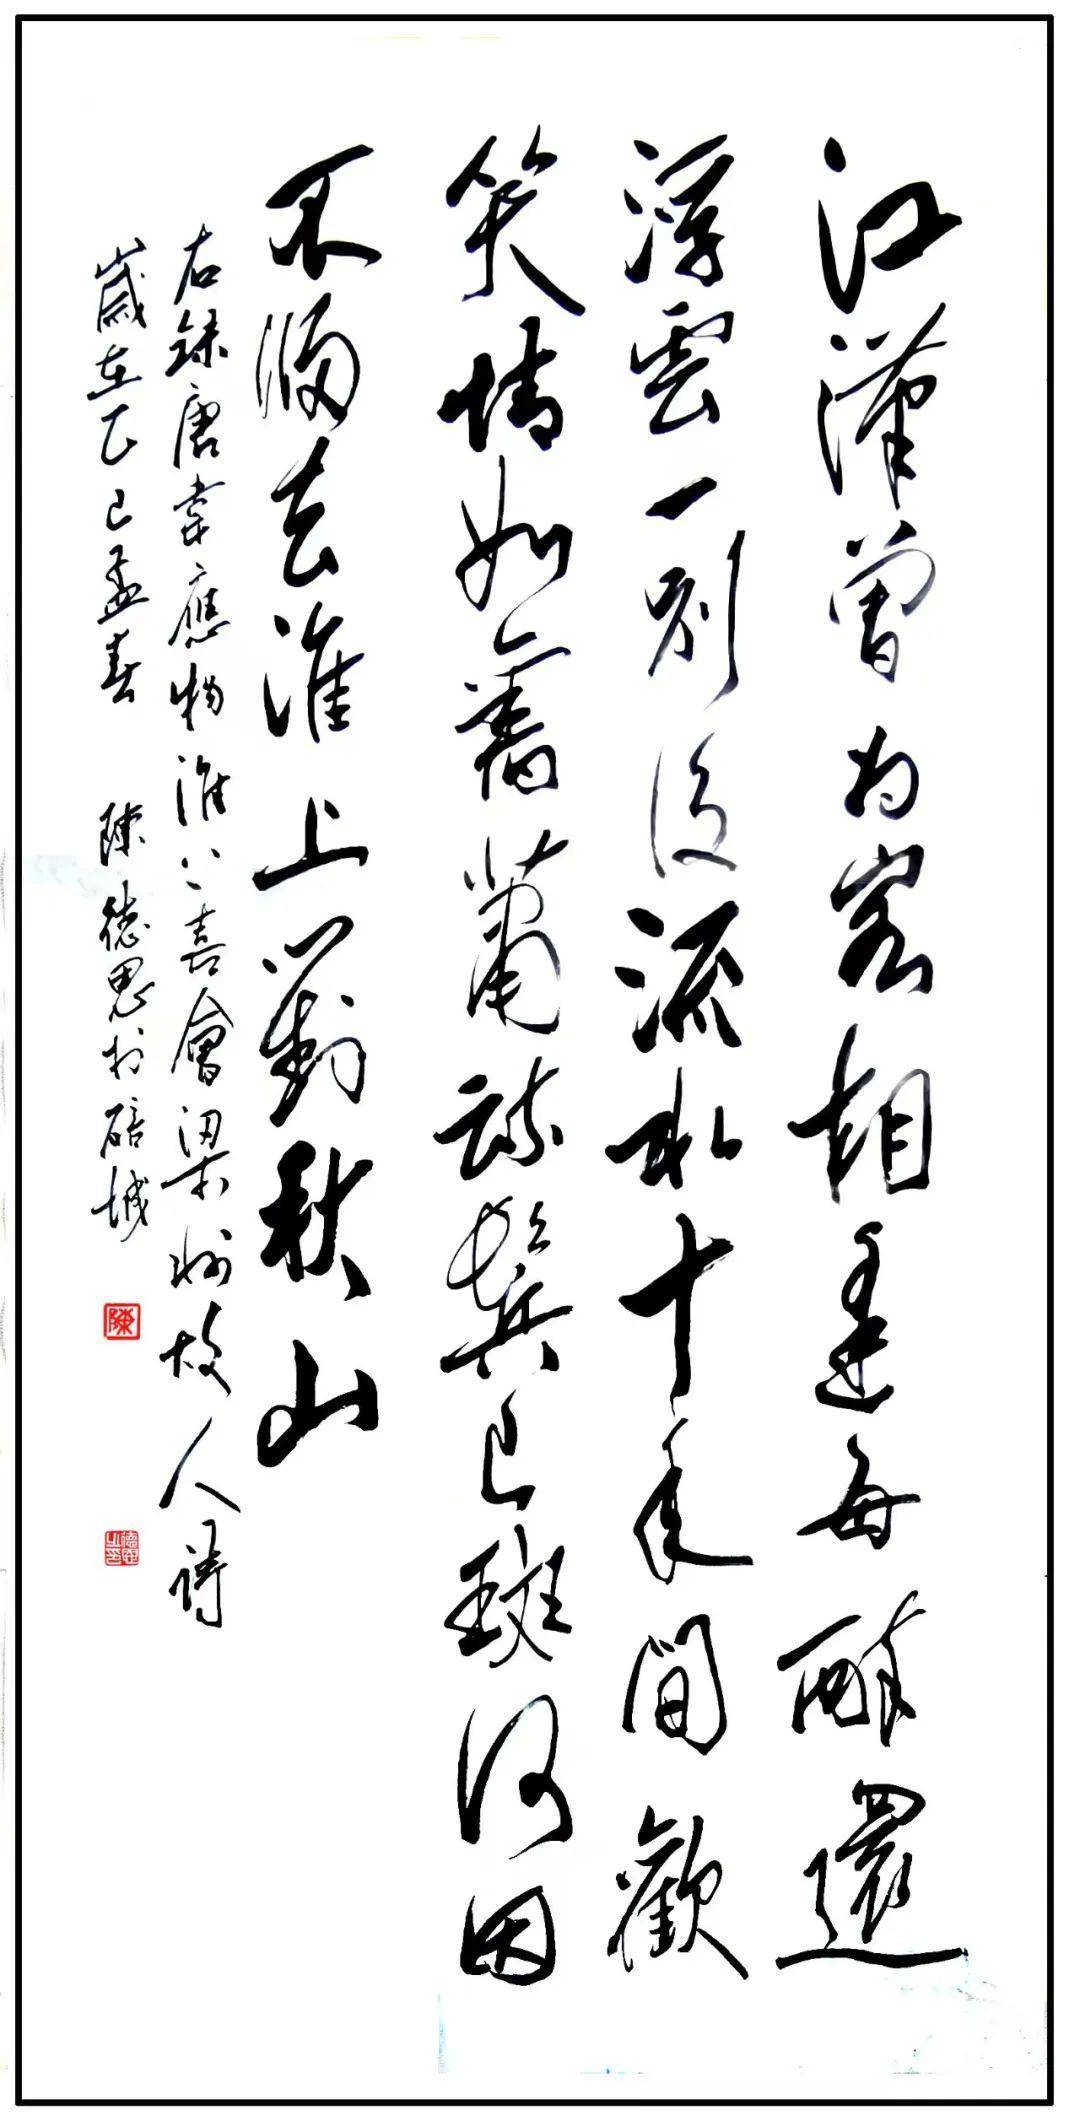 江漢曾為客相逢每醉還
浮雲一別後流水十年間歡
笑情如舊蕭疏鬢已斑何因
不歸去淮上對秋山
右錄唐韋應物淮上喜會梁州故人詩
歲在乙巳孟春 陳德思於碚城
陳
德思之印